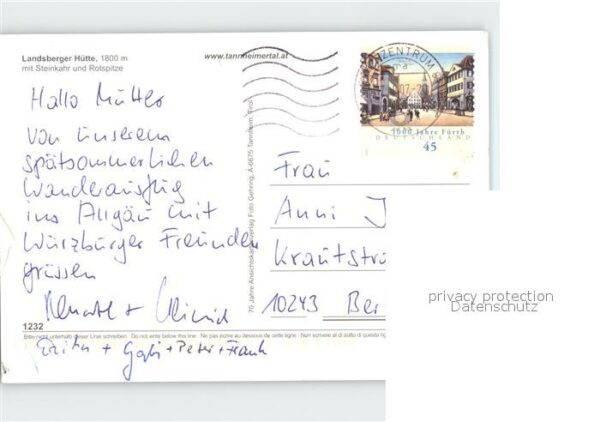 Landsberger Hütte, 1800 m
mit Steinkahr und Rotspitze
www.tannheimertal.at
Hallo Mutter
von unserem
spätsommerlichen
Wanderausflug
ins Allgäu mit
Würzburger Freunden
grüssen
Renate +
+ Gabi + Peter + Frank
1232
Bitte nicht unterhalb dieser Linie schreiben. Do not write below this line. Ne pas écrire au dessous de cette ligne. Non scrivere al di sotto di questa rig
70 Jahre Ansichtskartenverlag Foto Gehring, A-6675 Tannheim, Tirol
ZENTRUM
07
1000 Jahre Fürth
DEUTSCHLAND
45
Frau
Anni J
Krautstr
10243 Ber
privacy protection
Datenschutz